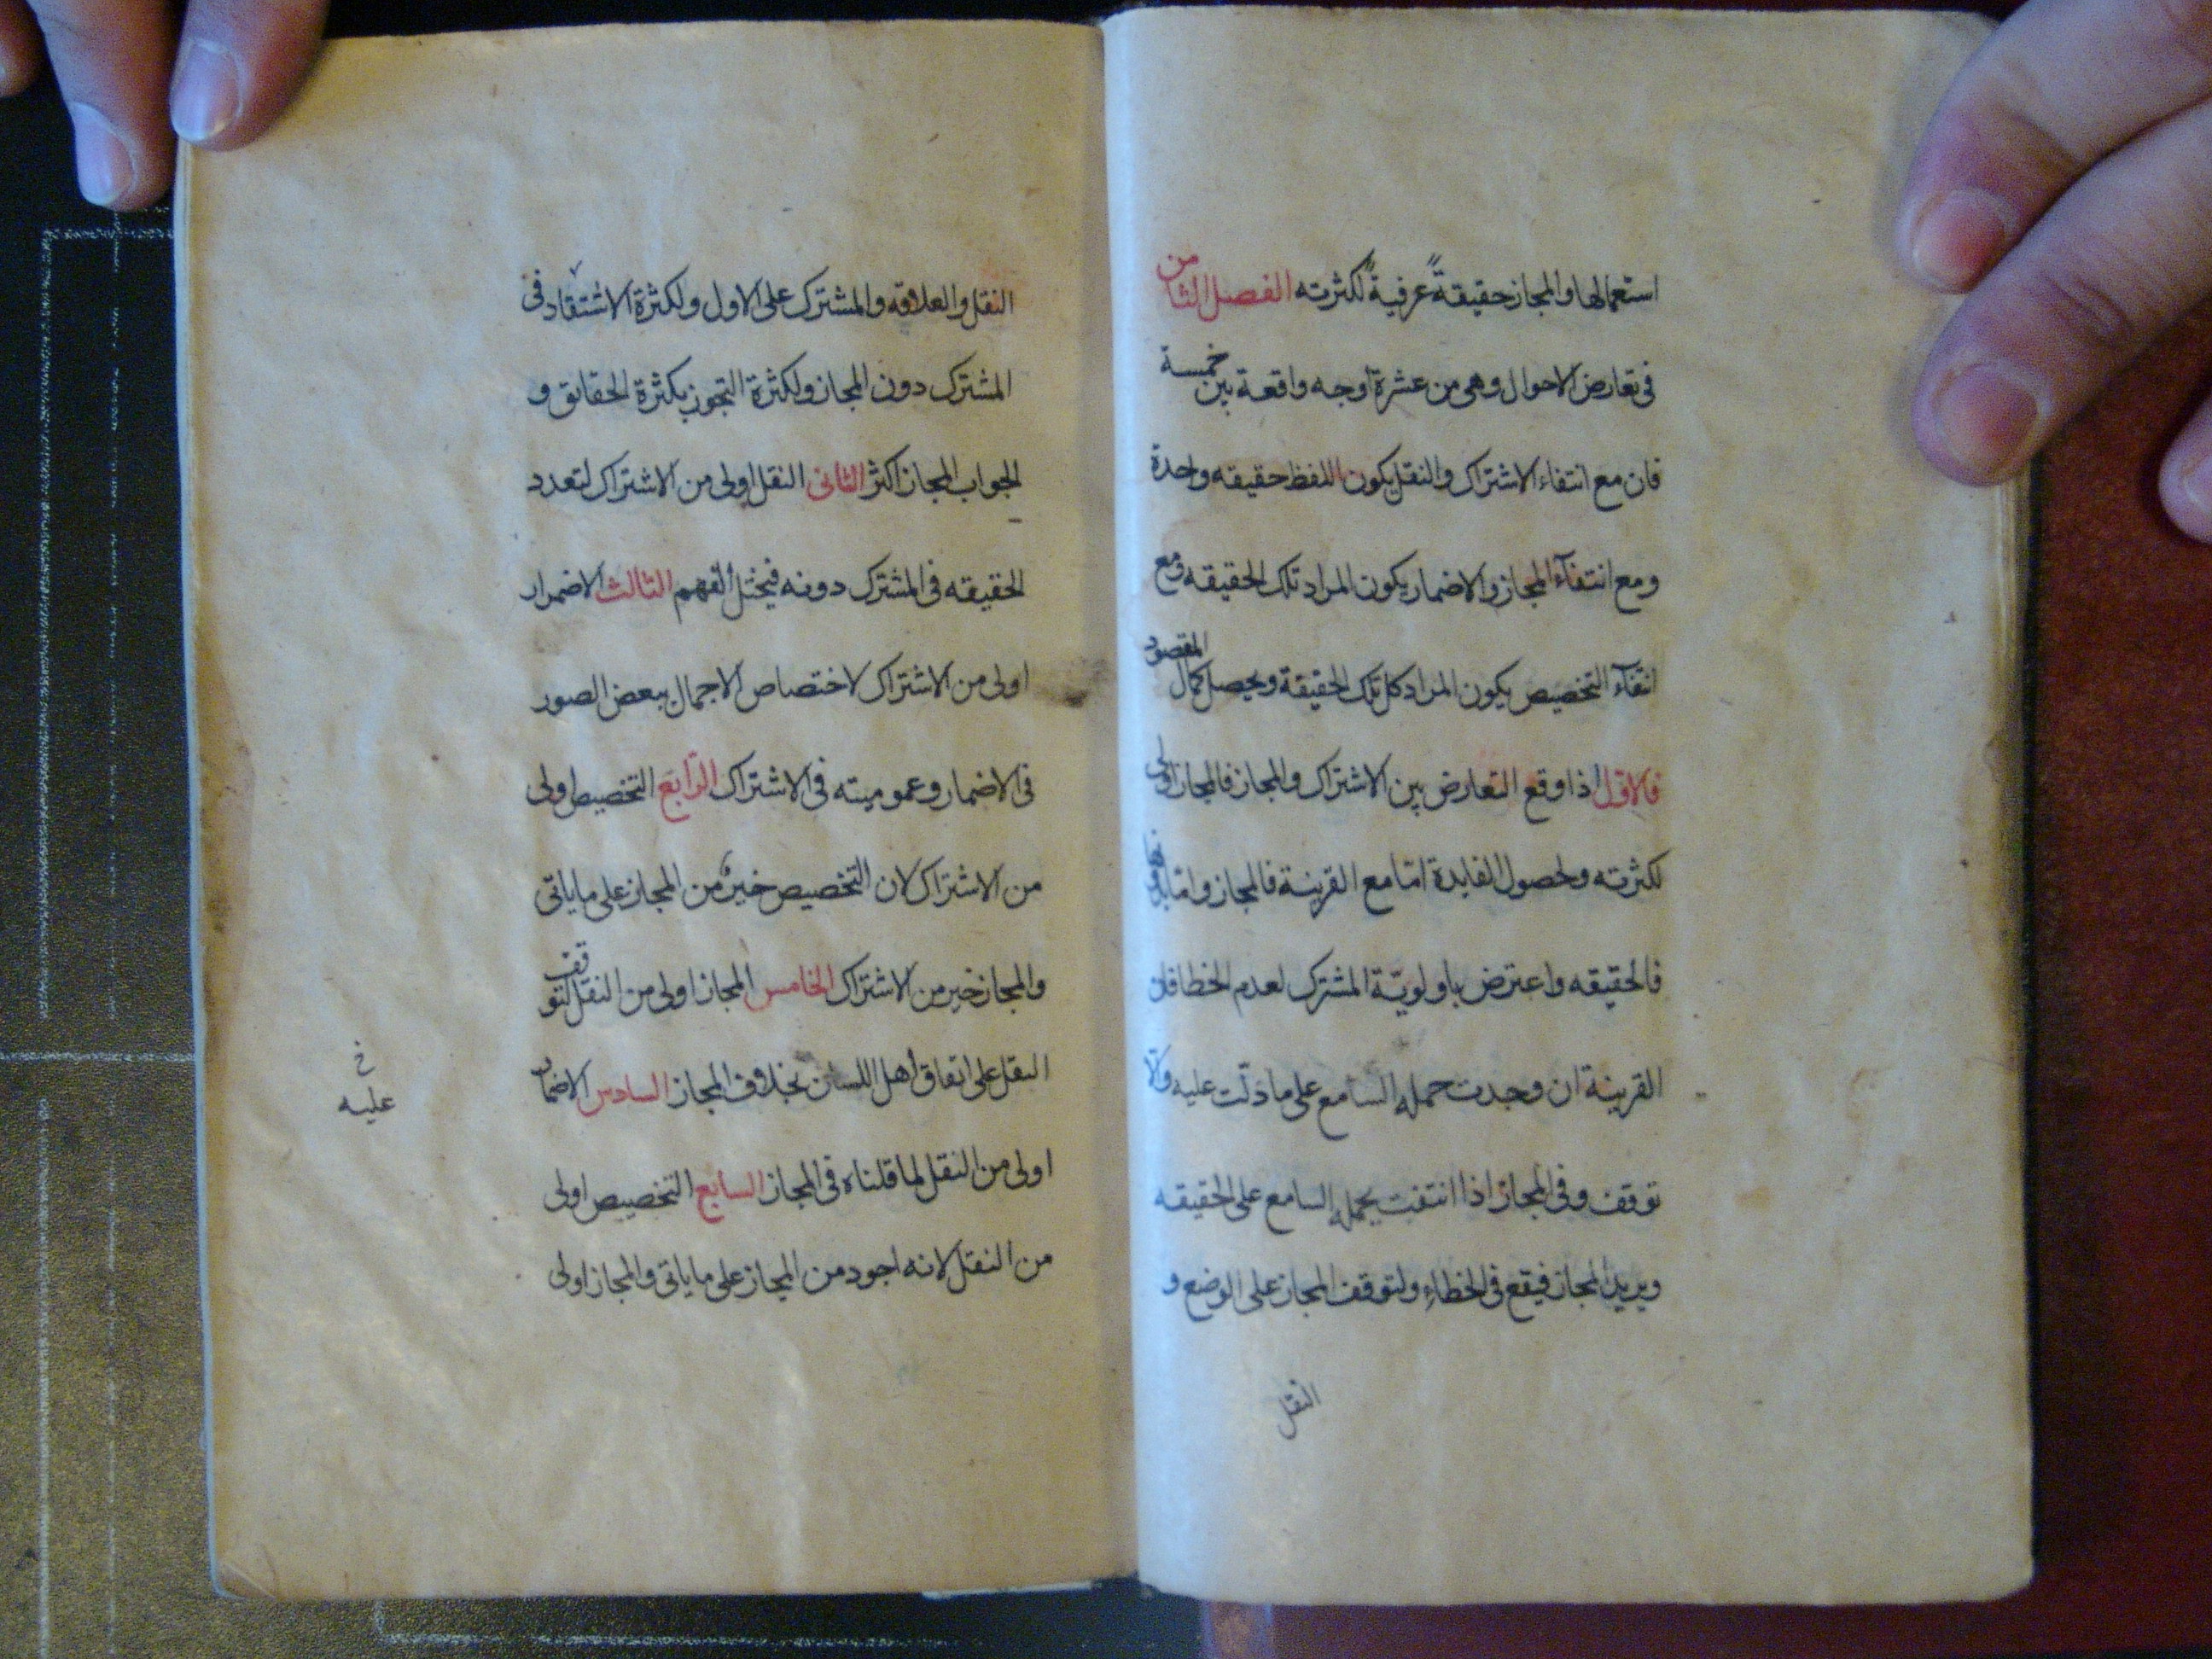 استعمالها والمجاز حقيقةً عرفيةً لكثرته الفصل الثامن
فى تعارض الاحوال وهى من عشرة اوجه واقعة بين خمسة
فان مع انتفاء الاشتراك والنقل يكون اللفظ حقيقه واحدة
ومع انتفآء المجاز والاضمار يكون المراد تلك الحقيقه ومع
انتفآء التخصيص يكون المراد كل تلك الحقيقة ويحصل كمال المقصود
فالاول اذا وقع التعارض بين الاشتراك والمجاز فالمجاز اولى
لكثرته ولحصول الفايدة امّا مع القرينة فالمجاز وامّا بدونها
فالحقيقه واعترض باولويّة المشترك لعدم الخطا فان
القرينة ان وجدت حمله السامع على ما دلّت عليه والّا
توقف وفى المجاز اذا انتفت يحمله السامع على الحقيقه
ويريد المجاز فيقع فى الخطاء ولتوقف المجاز على الوضع و
النقل
النقل والعلاقه والمشترك على الاول ولكثرة الاشتقاد فى
المشترك دون المجاز ولكثرة التجوز بكثرة الحقايق و
الجواب المجاز اكثر الثانى النقل اولى من الاشتراك لتعدد
الحقيقه فى المشترك دونه فيختل الفهم الثالث الاضمرار
اولى من الاشتراك لاختصاص الاجمال ببعض الصور
فى الاضمار وعموميته فى الاشتراك الرّابع التخصيص اولى
من الاشتراك لان التخصيص خير من المجاز على ماياتى
والمجاز خير من الاشتراك الخامس المجاز اولى من النقل لتوقف
النقل على اتفاق اهل اللسان بخلاف المجاز السادس الاضمار
خ
عليه
اولى من النقل لما قلناه فى المجاز السابع التخصيص اولى
من النقل لانه اجود من المجاز على ماياتى والمجاز اولى